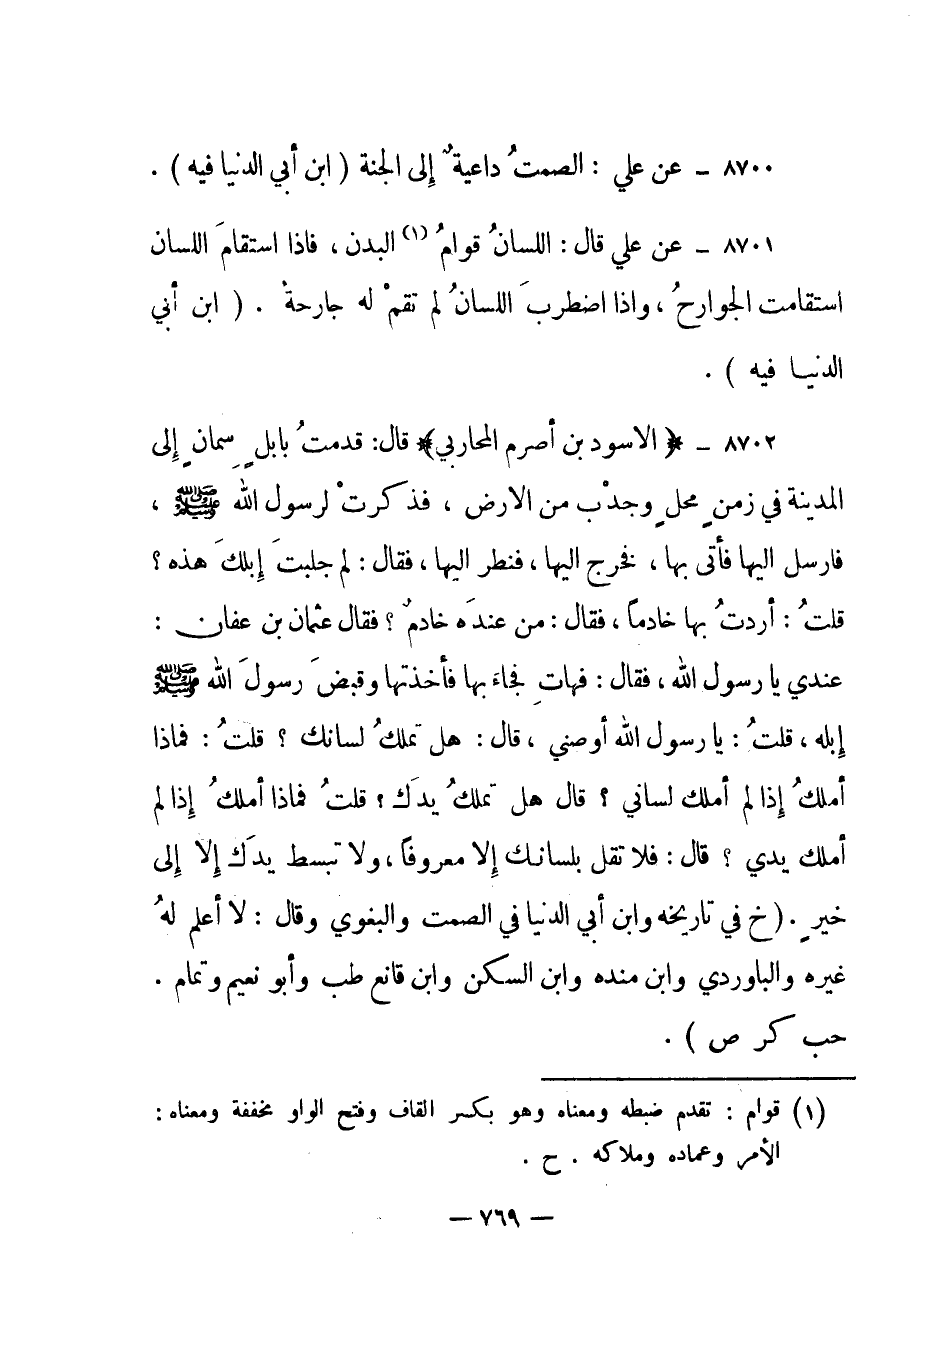 ٨٧٠٠ ـ عن علي : الصمتُ داعيةٌ إلى الجنة ( ابن أبي الدنيا فيه ) .
٨٧٠١ ـ عن علي قال : اللسانُ قوامُ (١) البدن ، فاذا استقامَ اللسان
استقامت الجوارحُ ، واذا اضطربَ اللسانُ لم تقمْ له جارحةٌ . ( ابن أبي
الدنيا فيه ) .
٨٧٠٢ ـ ﴿ الاسود بن أصرم المحاربي ﴾ قال : قدمتُ بابلٍ سمانٍ إلى
المدينة في زمنٍ محلٍ وجدْب من الارض ، فذكرتْ لرسول الله ﷺ ،
فارسل اليها فأتى بها ، فخرج اليها ، فنطر اليها ، فقال : لم جلبتَ إبلكَ هذه ؟
قلتُ : أردتُ بها خادماً ، فقال : من عندَه خادمٌ ؟ فقال عثمان بن عفان :
عندي يا رسول الله ، فقال : فهاتِ فجاءَ بها فأخذتها وقبضَ رسولَ الله ﷺ
إبله ، قلتُ : يا رسول الله أوصني ، قال : هل تملكُ لسانك ؟ قلتُ : فماذا
أملكُ إذا لم أملك لساني ؟ قال هل تملكُ يدَك ؟ قلتُ فماذا أملكُ إذا لم
أملك يدي ؟ قال : فلا تقل بلسانك إلا معروفاً ، ولا تبسط يدَك إلا إلى
خيرٍ . ( خ في تاريخه وابن أبي الدنيا في الصمت والبغوي وقال : لا أعلم لهُ
غيره والباوردي وابن منده وابن السكن وابن قانع طب وأبو نعيم وتمام .
حب كر ص ) .
(١) قوام : تقدم ضبطه ومعناه وهو بكسر القاف وفتح الواو مخففة ومعناه :
الأمر وعماده وملاكه . ح .
— ٧٦٩ —